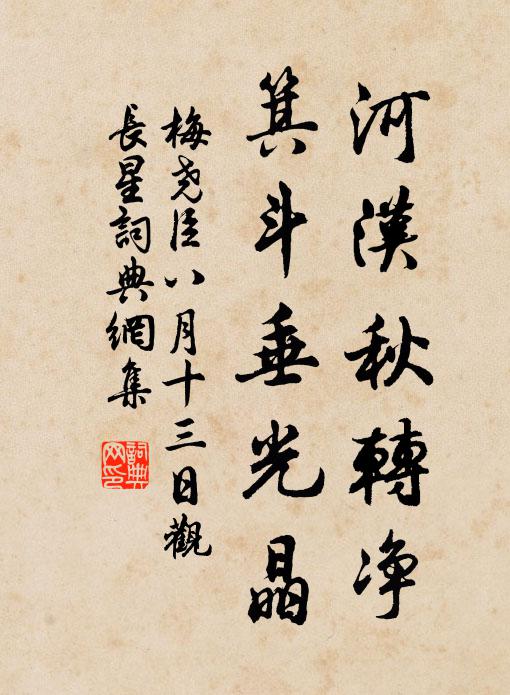 河漢秋轉净
箕斗垂光晶
梅堯臣八月十三日觀
長星詞典網集
詞典网印